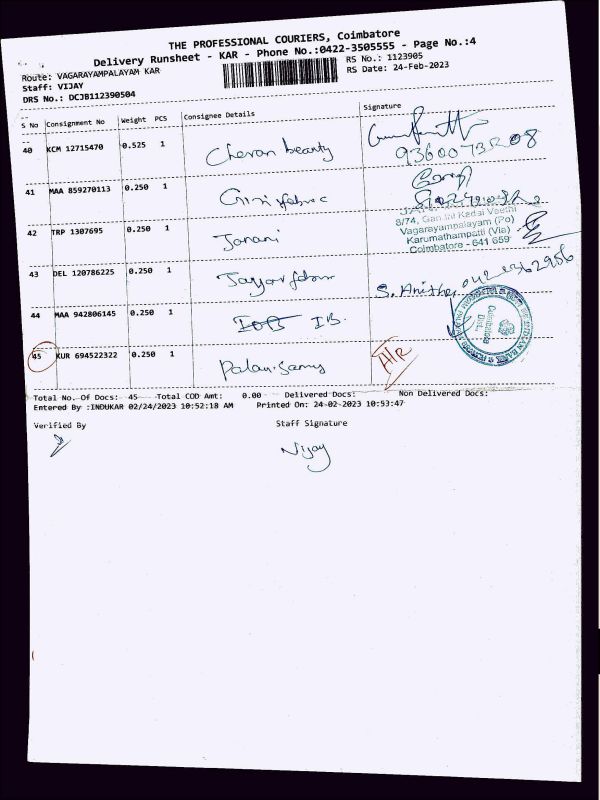 THE PROFESSIONAL COURIERS, Coimbatore
Delivery Runsheet - KAR - Phone No.:0422-3505555 - Page No.:4
Route: VAGARAYAMPALAYAM KAR
RS No.: 1123905
Staff: VIJAY
RS Date: 24-Feb-2023
DRS No.: DCJB112390504
S No Consignment No Weight PCS Consignee Details Signature
40 KCM 12715470 0.525 1 Cheran beauty
41 MAA 859270113 0.250 1
42 TRP 1307695 0.250 1 Janani
8/74, Gandhi Kadai Veethi
Vagarayampalayam (Po)
Karumathampatti (Via)
Coimbatore - 641 659
43 DEL 120786225 0.250 1
S. Anitha
44 MAA 942806145 0.250 1 IOB IB.
45 KUR 694522322 0.250 1 Palanisamy
Total No. Of Docs: 45 Total COD Amt: 0.00 Delivered Docs: Non Delivered Docs:
Entered By :INDUKAR 02/24/2023 10:52:18 AM Printed On: 24-02-2023 10:53:47
Verified By Staff Signature
Vijay